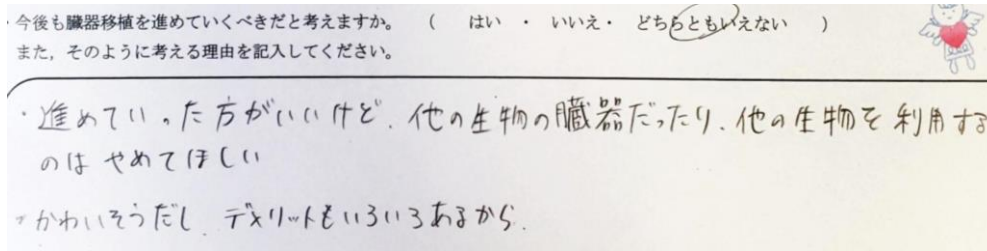 ・今後も臓器移植を進めていくべきだと考えますか。 ( はい ・ いいえ・ どちらともいえない )
また，そのように考える理由を記入してください。
・進めていった方がいいけど、他の生物の臓器だったり、他の生物を利用する
のは やめてほしい
かわいそうだし、デメリットもいろいろあるから.